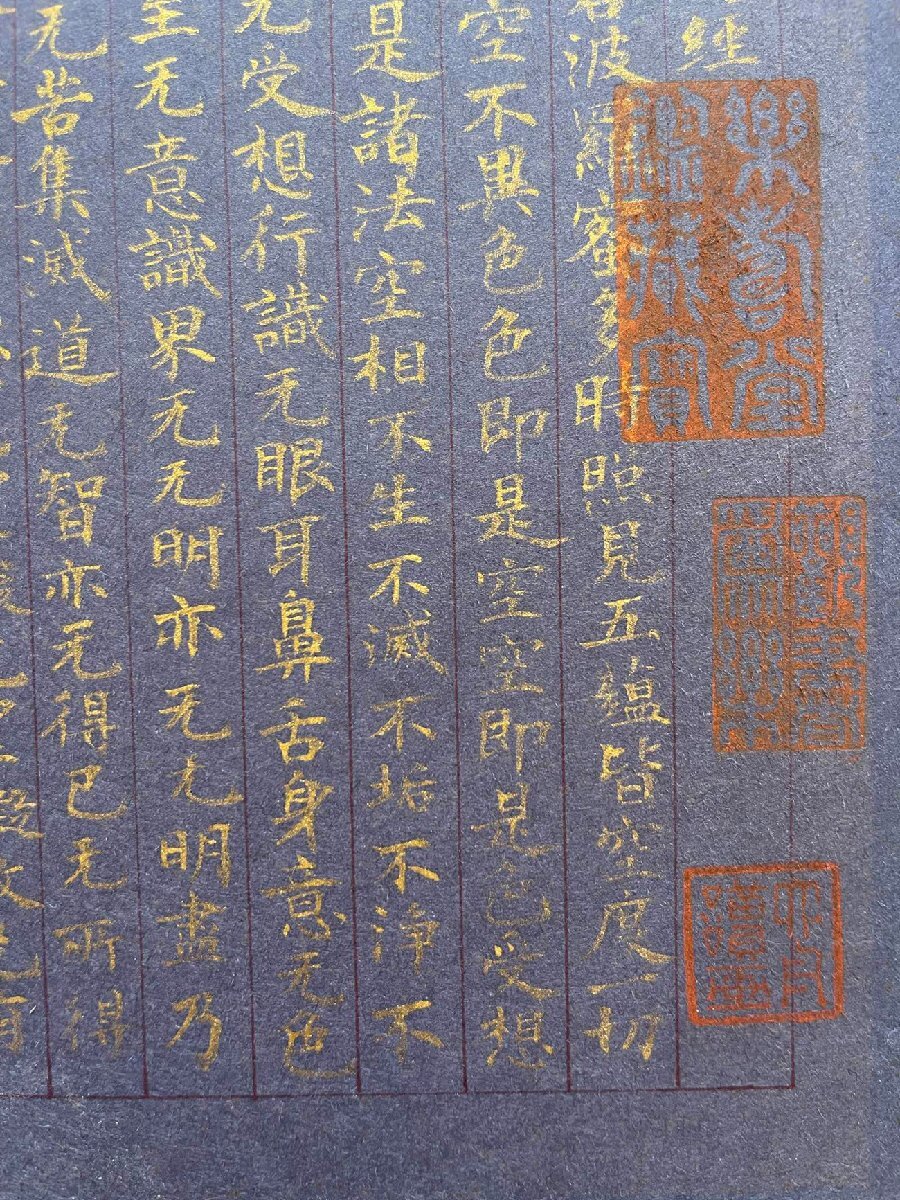 經
若波羅蜜多時照見五蘊皆空度一切
空不異色色即是空空即是色受想
是諸法空相不生不滅不垢不淨不
无受想行識无眼耳鼻舌身意无色
至无意識界无无明亦无无明盡乃
无苦集滅道无智亦无得已无所得
故无有
樂壽堂
鑑藏寶